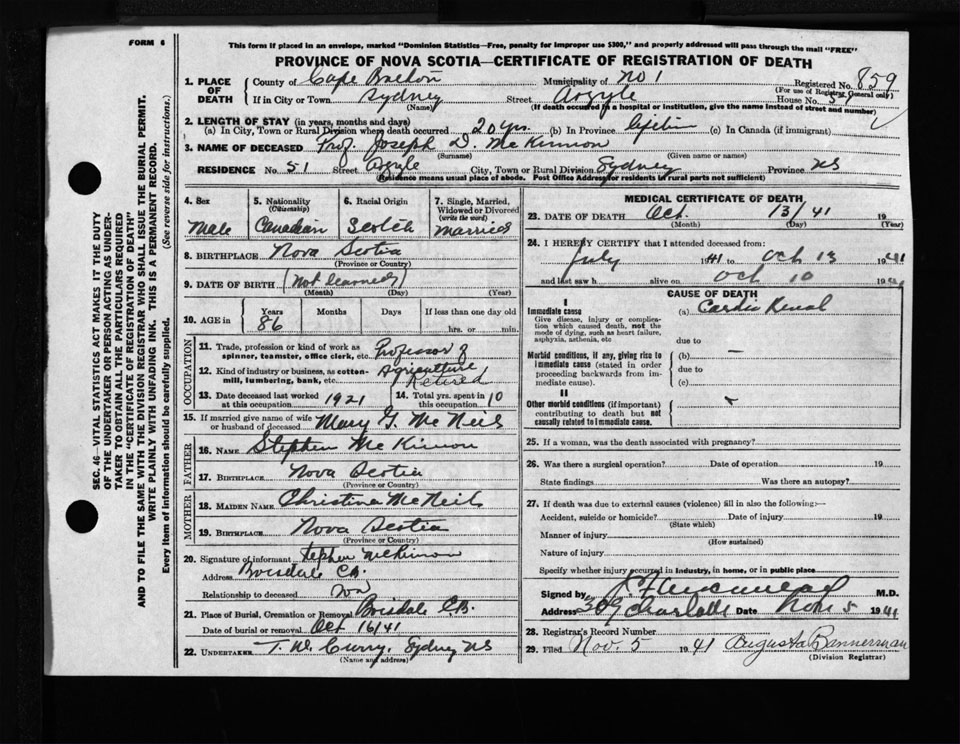 FORM 6
This form if placed in an envelope, marked "Dominion Statistics—Free, penalty for improper use $300," and properly addressed will pass through the mail "FREE"
PROVINCE OF NOVA SCOTIA—CERTIFICATE OF REGISTRATION OF DEATH
1. PLACE OF DEATH
County of Cape Breton Municipality of No 1 Registered No. 859
(For use of Registrar General only)
If in City or Town Sydney Street Argyle House No. 51
(Name) (If death occurred in a hospital or institution, give the name instead of street and number)
2. LENGTH OF STAY (in years, months and days)
(a) In City, Town or Rural Division where death occurred 20 yrs. (b) In Province lifetim (c) In Canada (if immigrant)
3. NAME OF DECEASED Prof. Joseph D. McKinnon
(Surname) (Given name or names)
RESIDENCE No. 51 Street Argyle City, Town or Rural Division Sydney Province NS
(Residence means usual place of abode. Post Office Address for residents of rural parts not sufficient)
4. Sex
Male
5. Nationality (Citizenship)
Canadian
6. Racial Origin
Scotch
7. Single, Married, Widowed or Divorced (write the word)
Married
8. BIRTHPLACE Nova Scotia
(Province or Country)
9. DATE OF BIRTH (Not learned)
(Month) (Day) (Year)
10. AGE in Years Months Days If less than one day old
86 hrs. or min.
OCCUPATION
11. Trade, profession or kind of work as spinner, teamster, office clerk, etc. Professor of
12. Kind of industry or business, as cotton-mill, lumbering, bank, etc. Agriculture Retired
13. Date deceased last worked at this occupation 1921
14. Total yrs. spent in this occupation 10
15. If married give name of wife or husband of deceased Mary G. McNeil
FATHER
16. NAME Stephen McKinnon
17. BIRTHPLACE Nova Scotia
(Province or Country)
MOTHER
18. MAIDEN NAME Christina McNeil
19. BIRTHPLACE Nova Scotia
(Province or Country)
20. Signature of informant Stephen McKinnon
Address Boisdale CB.
Relationship to deceased Son
21. Place of Burial, Cremation or Removal Boisdale C.B.
Date of burial or removal Oct 16/41
22. UNDERTAKER T. W. Curry, Sydney NS
(Name and address)
MEDICAL CERTIFICATE OF DEATH
23. DATE OF DEATH Oct. 13/41 19
(Month) (Day) (Year)
24. I HEREBY CERTIFY that I attended deceased from:
July 1941 to Oct 13 1941
and last saw h alive on Oct 10 19
CAUSE OF DEATH
I
Immediate cause (a) Cardio Renal
Give disease, injury or complication which caused death, not the mode of dying, such as heart failure, asphyxia, asthenia, etc
due to
Morbid conditions, if any, giving rise to immediate cause (stated in order proceeding backwards from immediate cause).
(b) —
due to
(c)
II
Other morbid conditions (if important) contributing to death but not causally related to immediate cause.
25. If a woman, was the death associated with pregnancy?
26. Was there a surgical operation? Date of operation 19
State findings Was there an autopsy?
27. If death was due to external causes (violence) fill in also the following:—
Accident, suicide or homicide? Date of injury 19
(State which)
Manner of injury
(How sustained)
Nature of injury
Specify whether injury occurred in industry, in home, or in public place
Signed by M.D.
Address 309 Charlotte Date Nov 5 1941
28. Registrar's Record Number
29. Filed Nov. 5 1941 Augusta Bannerman
(Division Registrar)
SEC. 46—VITAL STATISTICS ACT MAKES IT THE DUTY
OF THE UNDERTAKER OR PERSON ACTING AS UNDER-
TAKER TO OBTAIN ALL THE PARTICULARS REQUIRED
IN THE "CERTIFICATE OF REGISTRATION OF DEATH"
AND TO FILE THE SAME WITH THE DIVISION REGISTRAR WHO SHALL ISSUE THE BURIAL PERMIT.
WRITE PLAINLY WITH UNFADING INK. THIS IS A PERMANENT RECORD.
Every item of information should be carefully supplied. (See reverse side for instructions.)